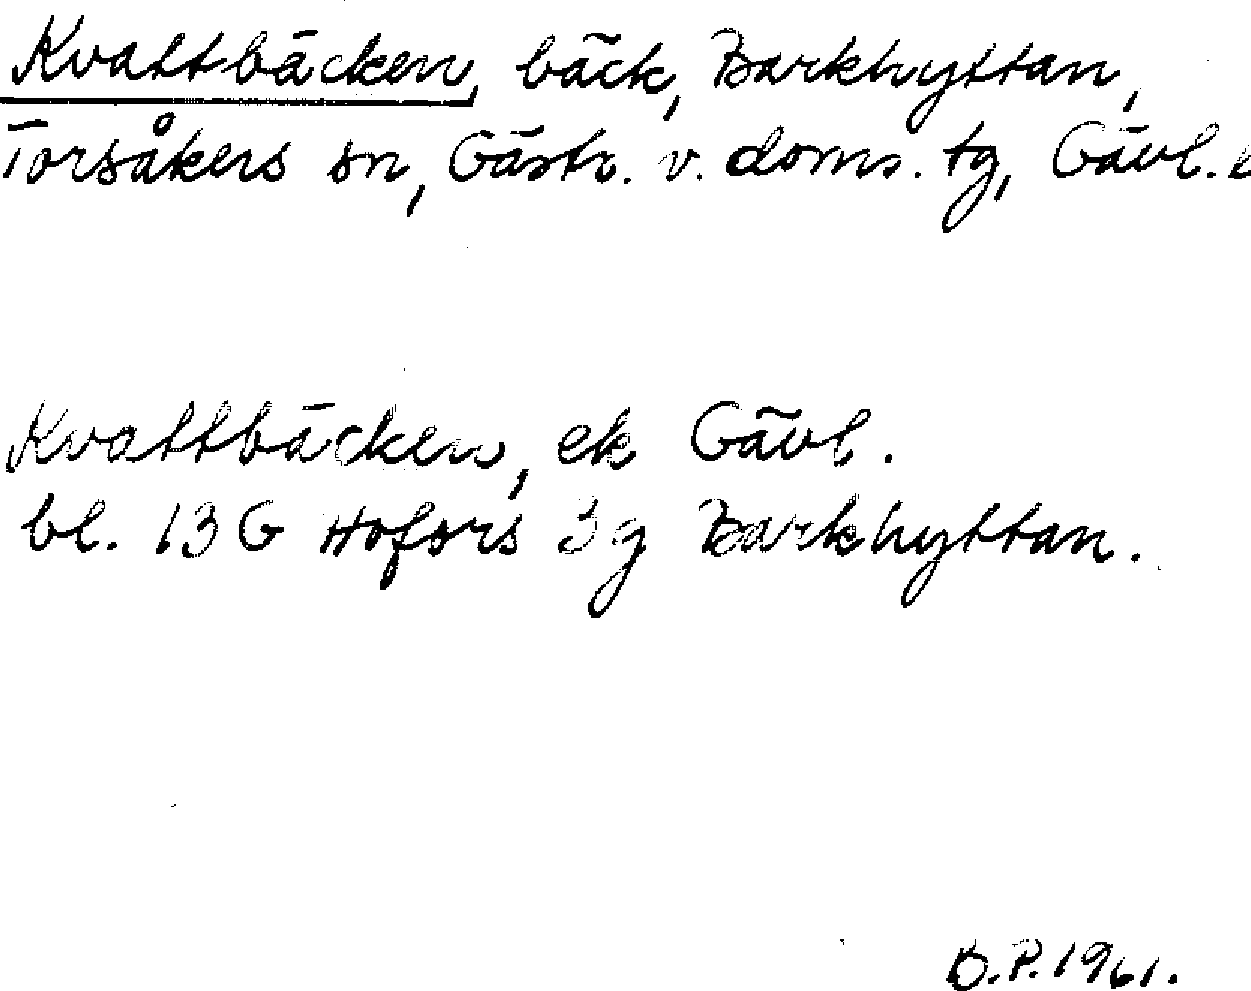 Kvattbäcken, bäck, Barkhyttan,
Torsåkers sn, Gästr. v. doms. tg, Gävl. l
Kvattbäcken, ek Gävl.
bl. 13G Hofors 3g Barkhyttan.
B.P. 1961.